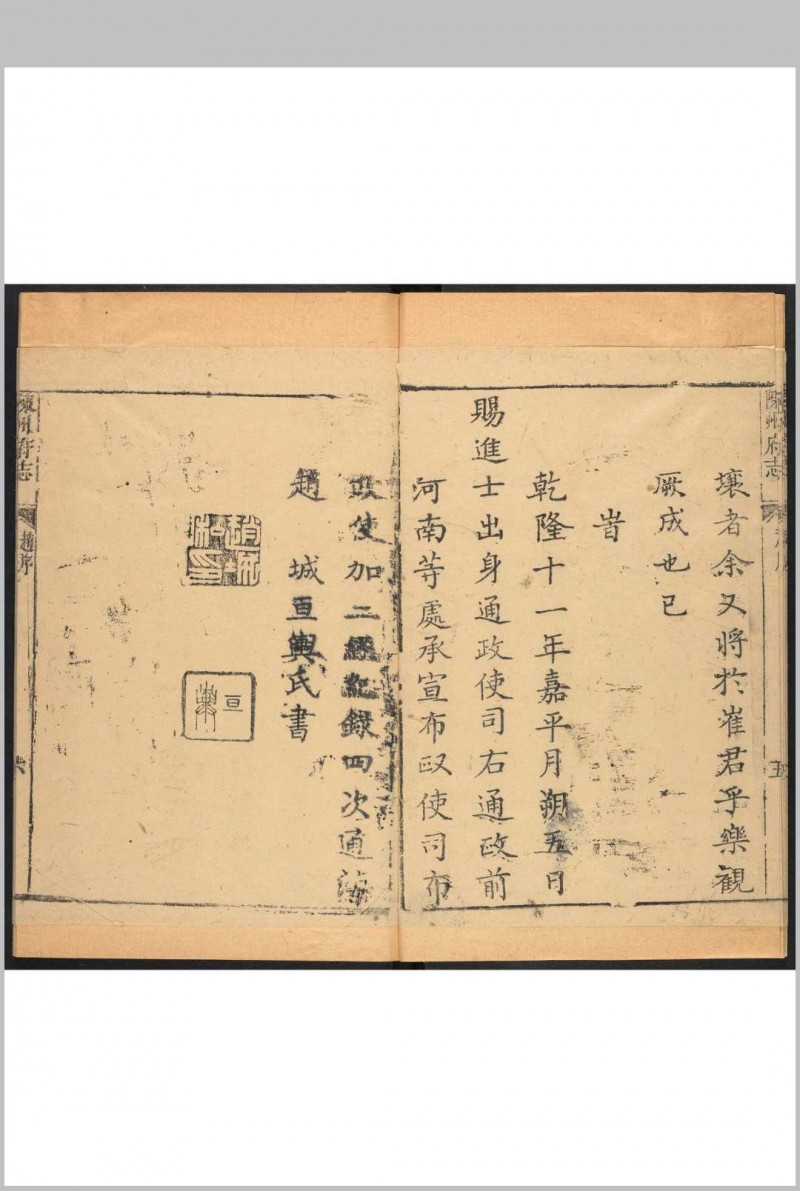 壤者余又將於崔君乎樂觀
厥成也已
旹
乾隆十一年嘉平月朔五日
賜進士出身通政使司右通政前
河南等處承宣布政使司布
政使加二級紀録四次通
趙城亘輿氏書
陳州府志
趙序
五
陳州府志
趙序
六